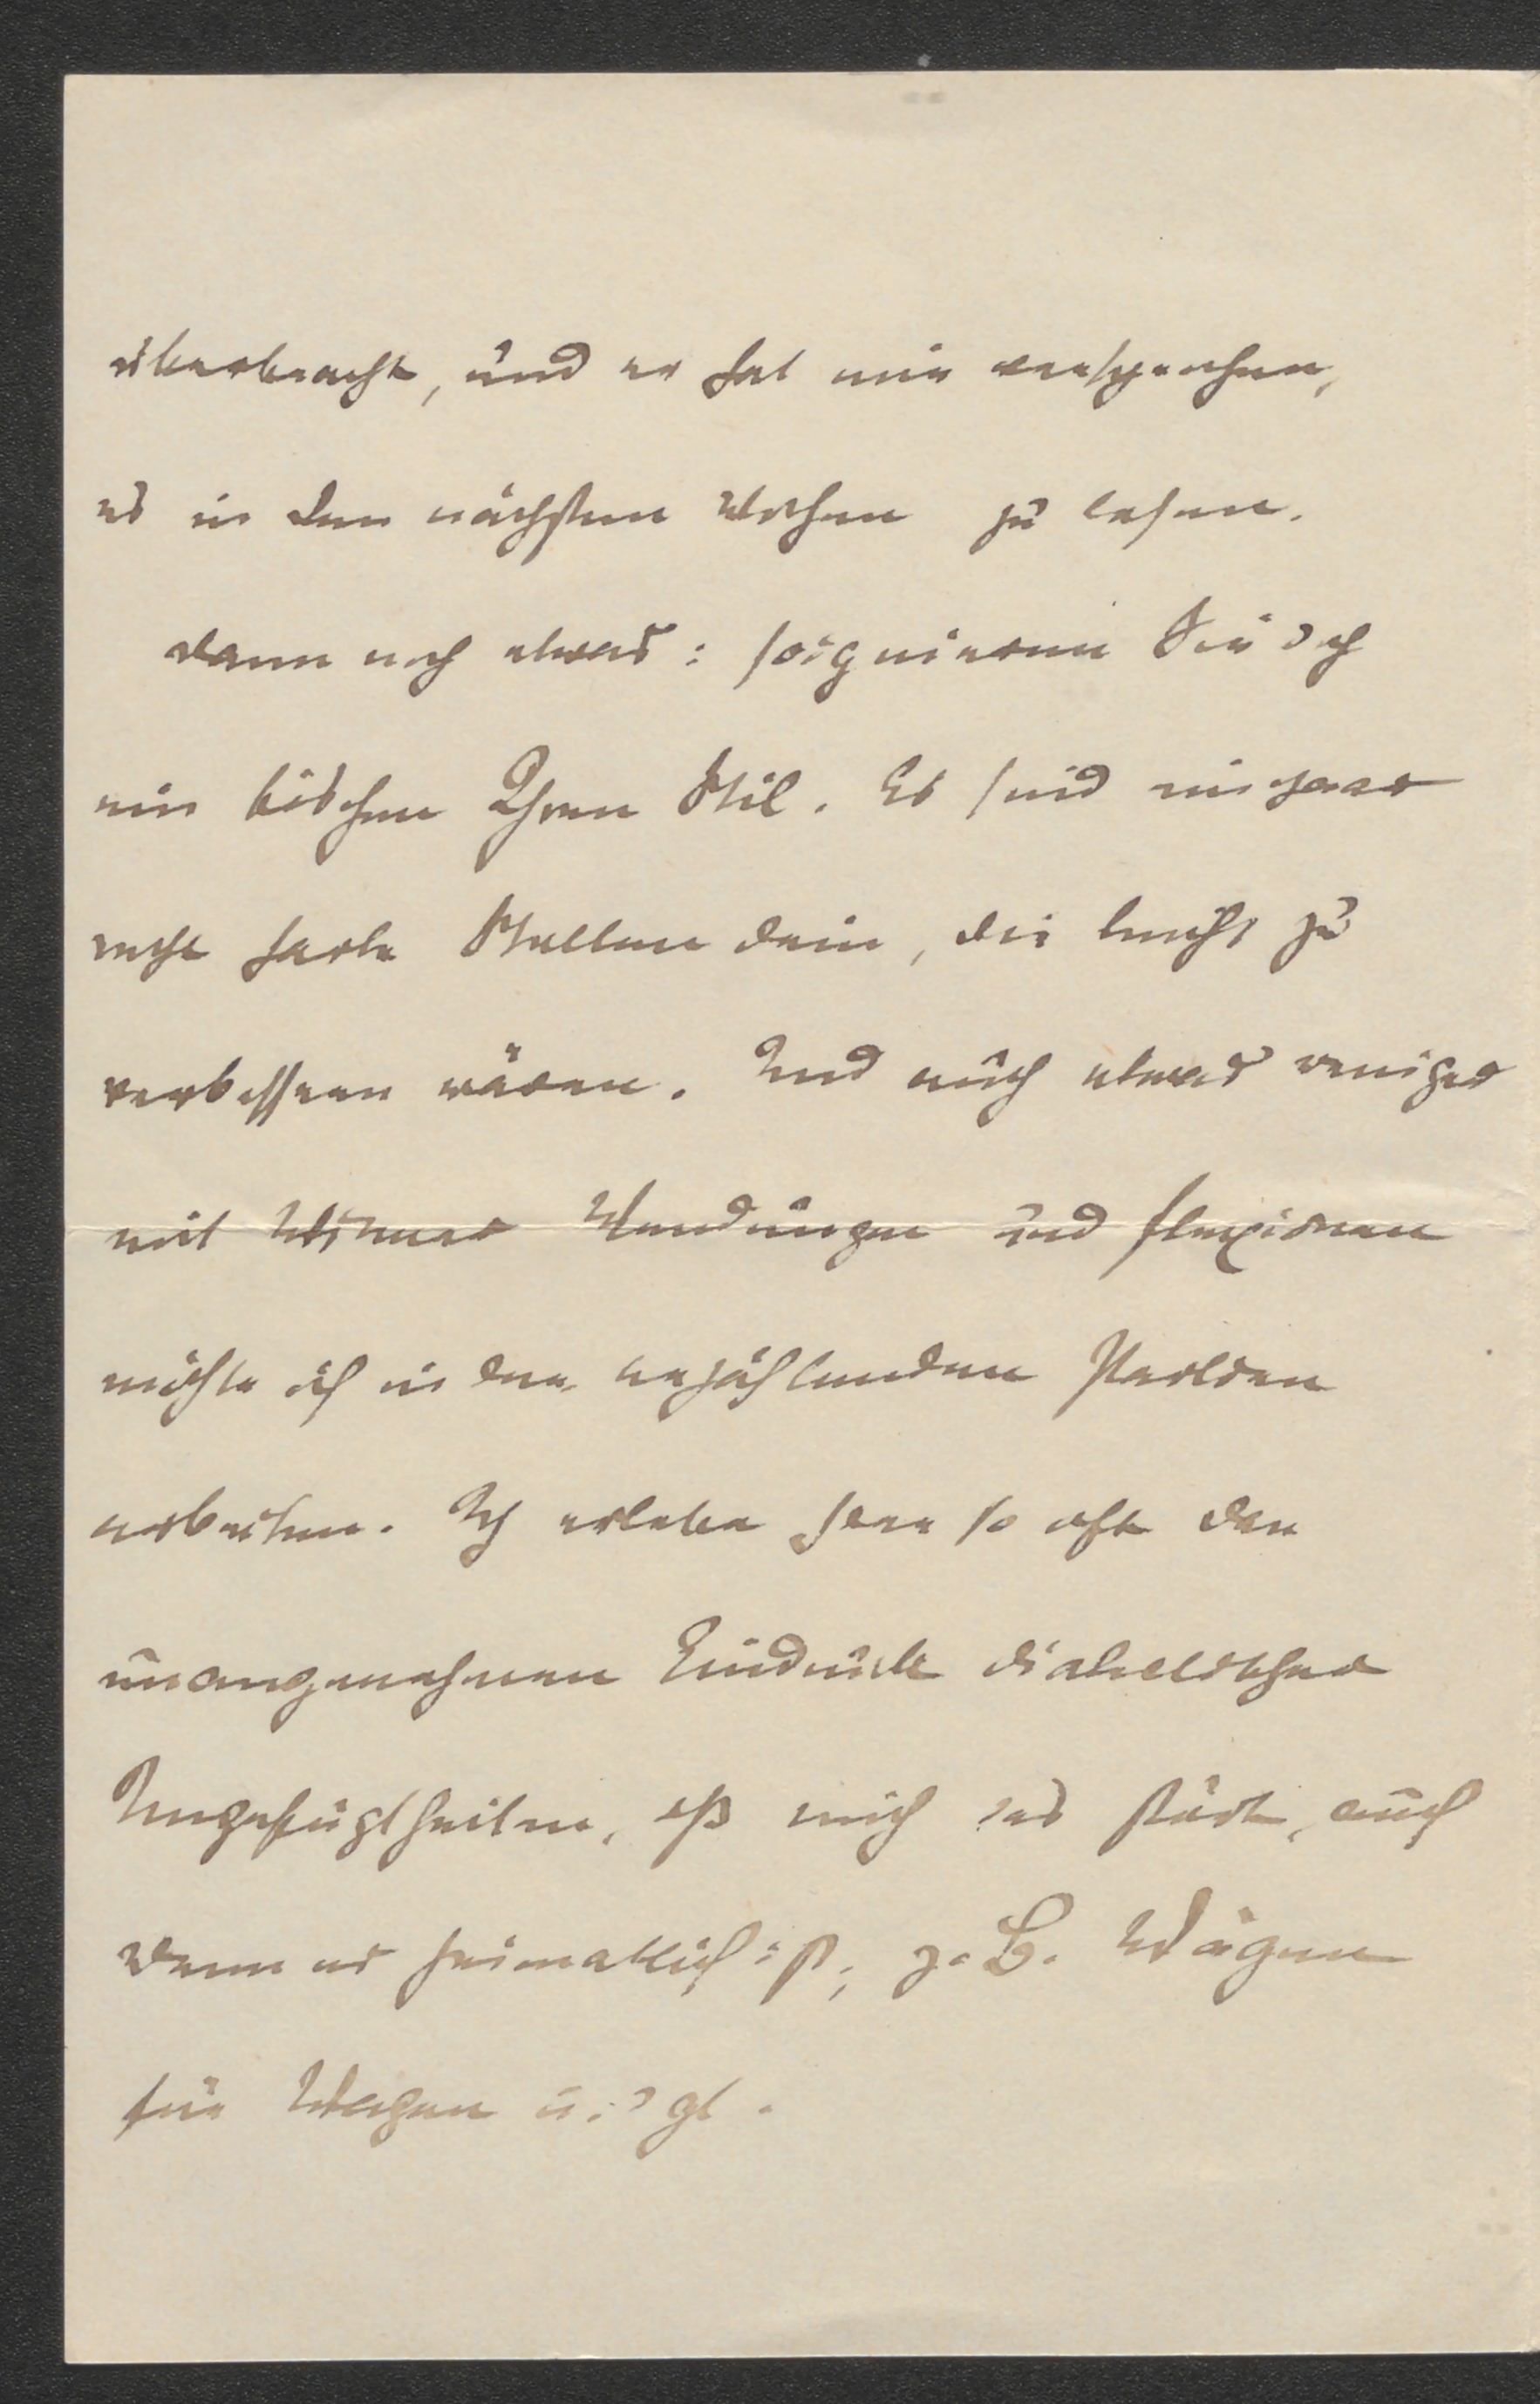 überbracht, und er hat mir versprochen,
es in den nächsten Wochen zu lesen.
Dann noch etwas: soignieren Sie doch
ein bischen Ihren Stil. Es sind ein paar
recht harte Stellen drin, die leicht zu
verbessern wären. Und auch etwas weniger
mit Wiener Wendungen und Flexionen
möchte ich in den erzählenden Partien
arbeiten. Ich erlebe hier so oft den
unangenehmen Eindruck dialektischer
Ungefügtheiten, daß mich das stört, auch
wenn es heimatlich ist; z. B. Wägen
für Wagen u. dgl.